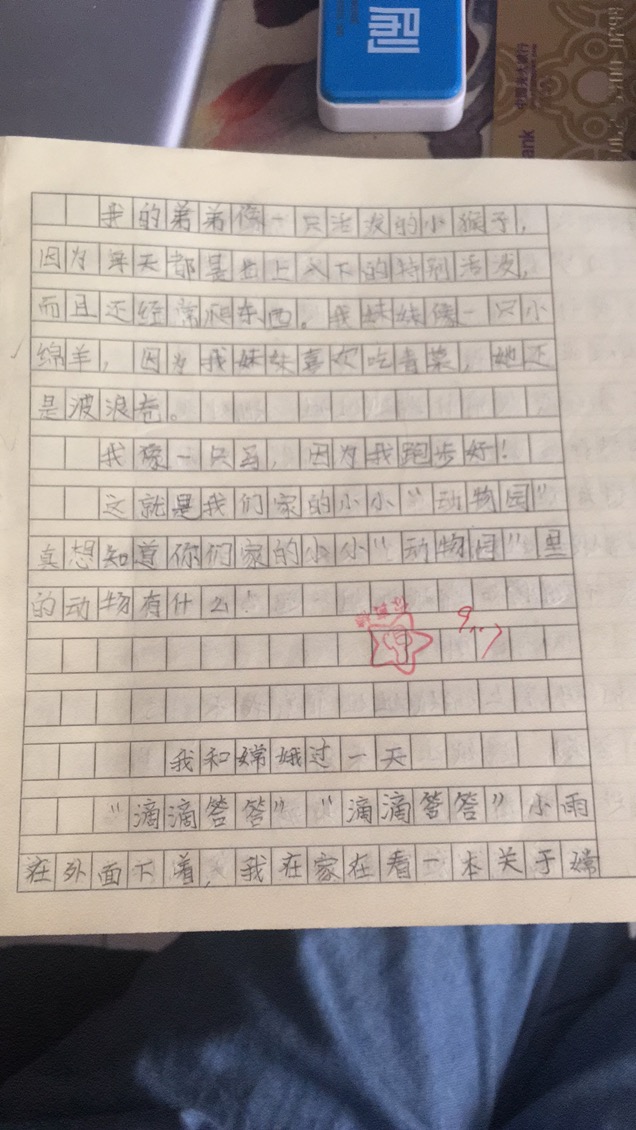 中国光大银行
bank
我的弟弟像一只活泼的小猴子，
因为每天都是上上下下的特别活泼，
而且还经常爬东西。我妹妹像一只小
绵羊，因为我妹妹喜欢吃青菜，她还
是波浪卷。
我像一只马，因为我跑步好！
这就是我们家的小小“动物园”
真想知道你们家的小小“动物园”里
的动物有什么！
甲
9.17
我和嫦娥过一天
“滴滴答答”“滴滴答答”小雨
在外面下着，我在家在看一本关于嫦